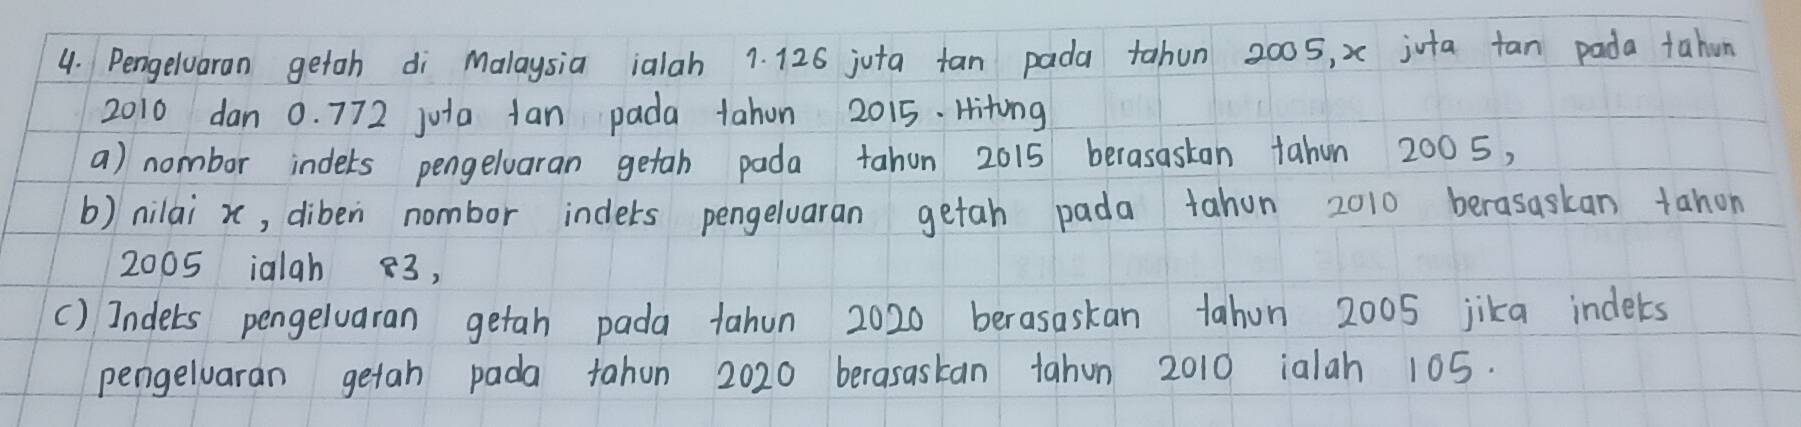 4. Pengeluaran getah di Malaysia ialah 1.126 juta tan pada tahun 2005, x juta tan pada tahun
2010 dan 0.772 juta tan pada tahun 2015. Hitung
a) nombor indeks pengeluaran getah pada tahun 2015 berasaskan tahun 2005,
b) nilai x, diberi nombor indeks pengeluaran getah pada tahun 2010 berasaskan tahun
2005 ialah 83,
c) Indeks pengeluaran getah pada tahun 2020 berasaskan tahun 2005 jika indeks
pengeluaran getah pada tahun 2020 berasaskan tahun 2010 ialah 105.